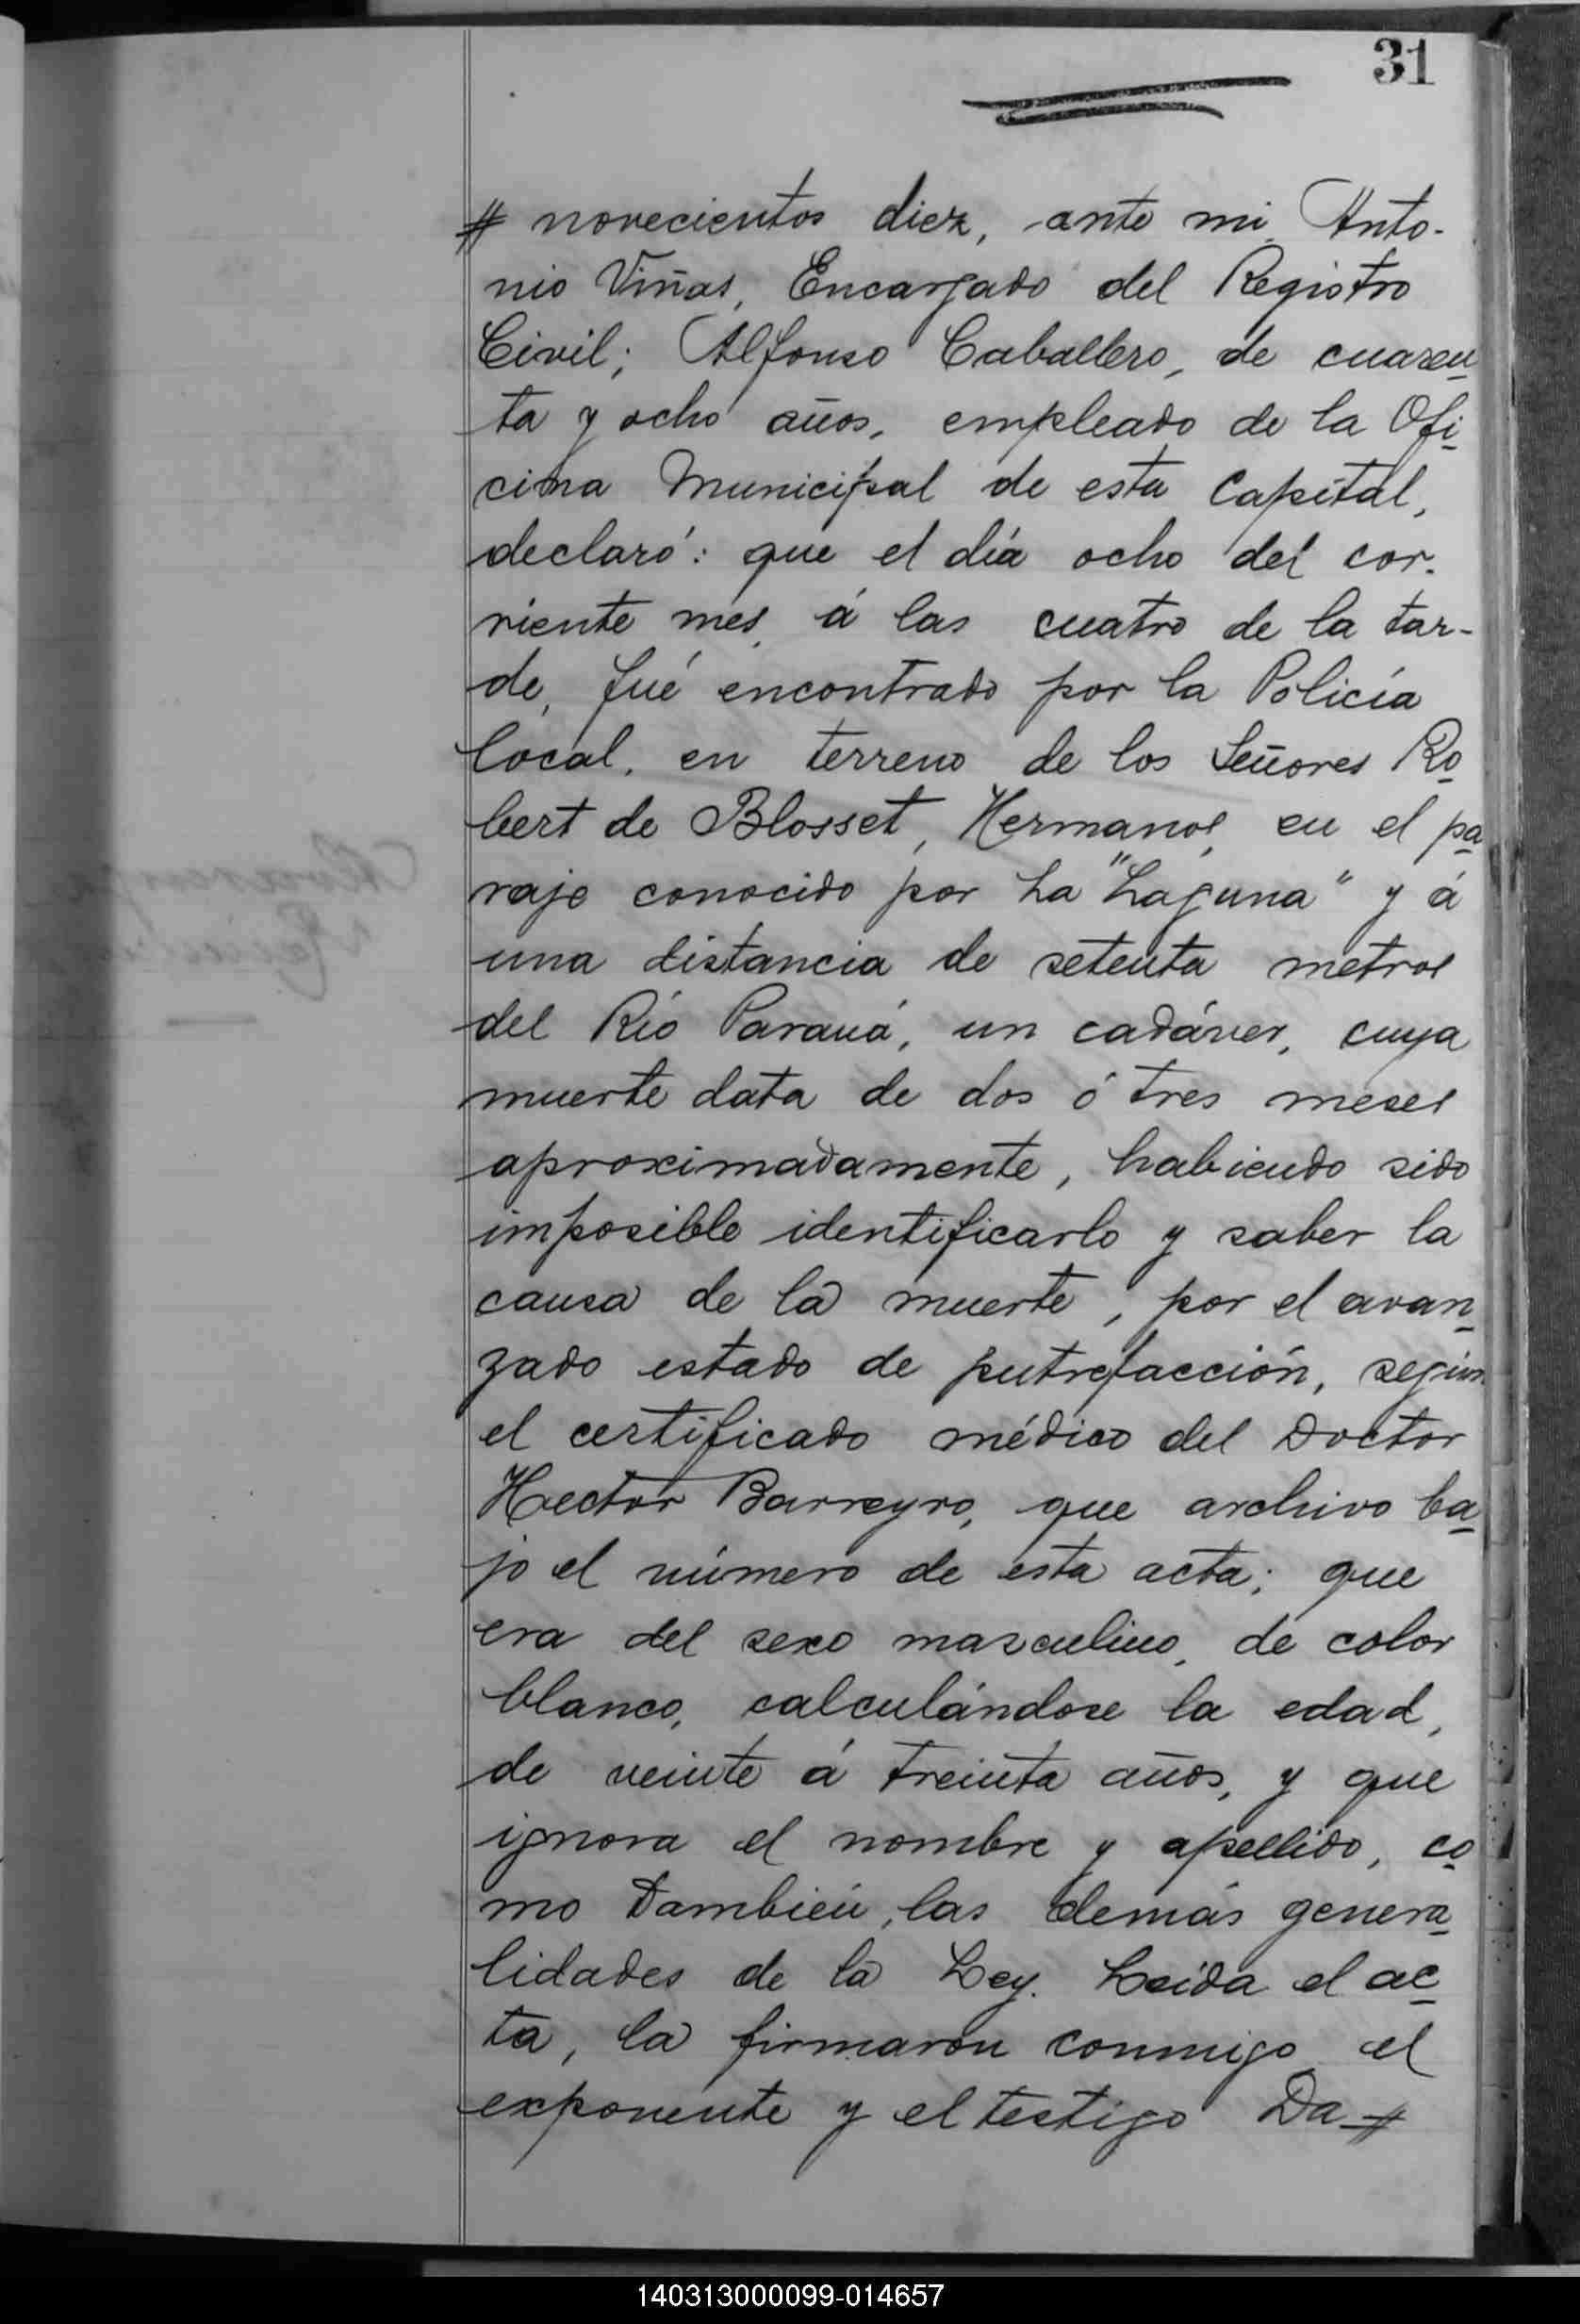 31
# novecientos diez, ante mi Anto-
nio Viñas, Encargado del Registro
Civil; Alfonso Caballero, de cuaren
ta y ocho años, empleado de la Ofi
cina Municipal de esta Capital,
declaró: que el día ocho del cor-
riente mes, á las cuatro de la tar-
de, fué encontrado por la Policía
local, en terreno de los Señores Ro
bert de Blosset, Hermanos, en el pa
raje conocido por La "Laguna" y á
una distancia de setenta metros
del Río Paraná, un cadáver, cuya
muerte data de dos ó tres meses
aproximadamente, habiendo sido
imposible identificarlo y saber la
causa de la muerte, por el avan
zado estado de putrefacción, según
el certificado médico del Doctor
Hector Barreyro, que archivo ba
jo el número de esta acta; que
era del sexo masculino, de color
blanco, calculándose la edad,
de veinte á treinta años, y que
ignora el nombre y apellido, co
mo también, las demás genera
lidades de la Ley. Leída el ac
ta, la firmaron conmigo el
exponente y el testigo Da #
140313000099-014657